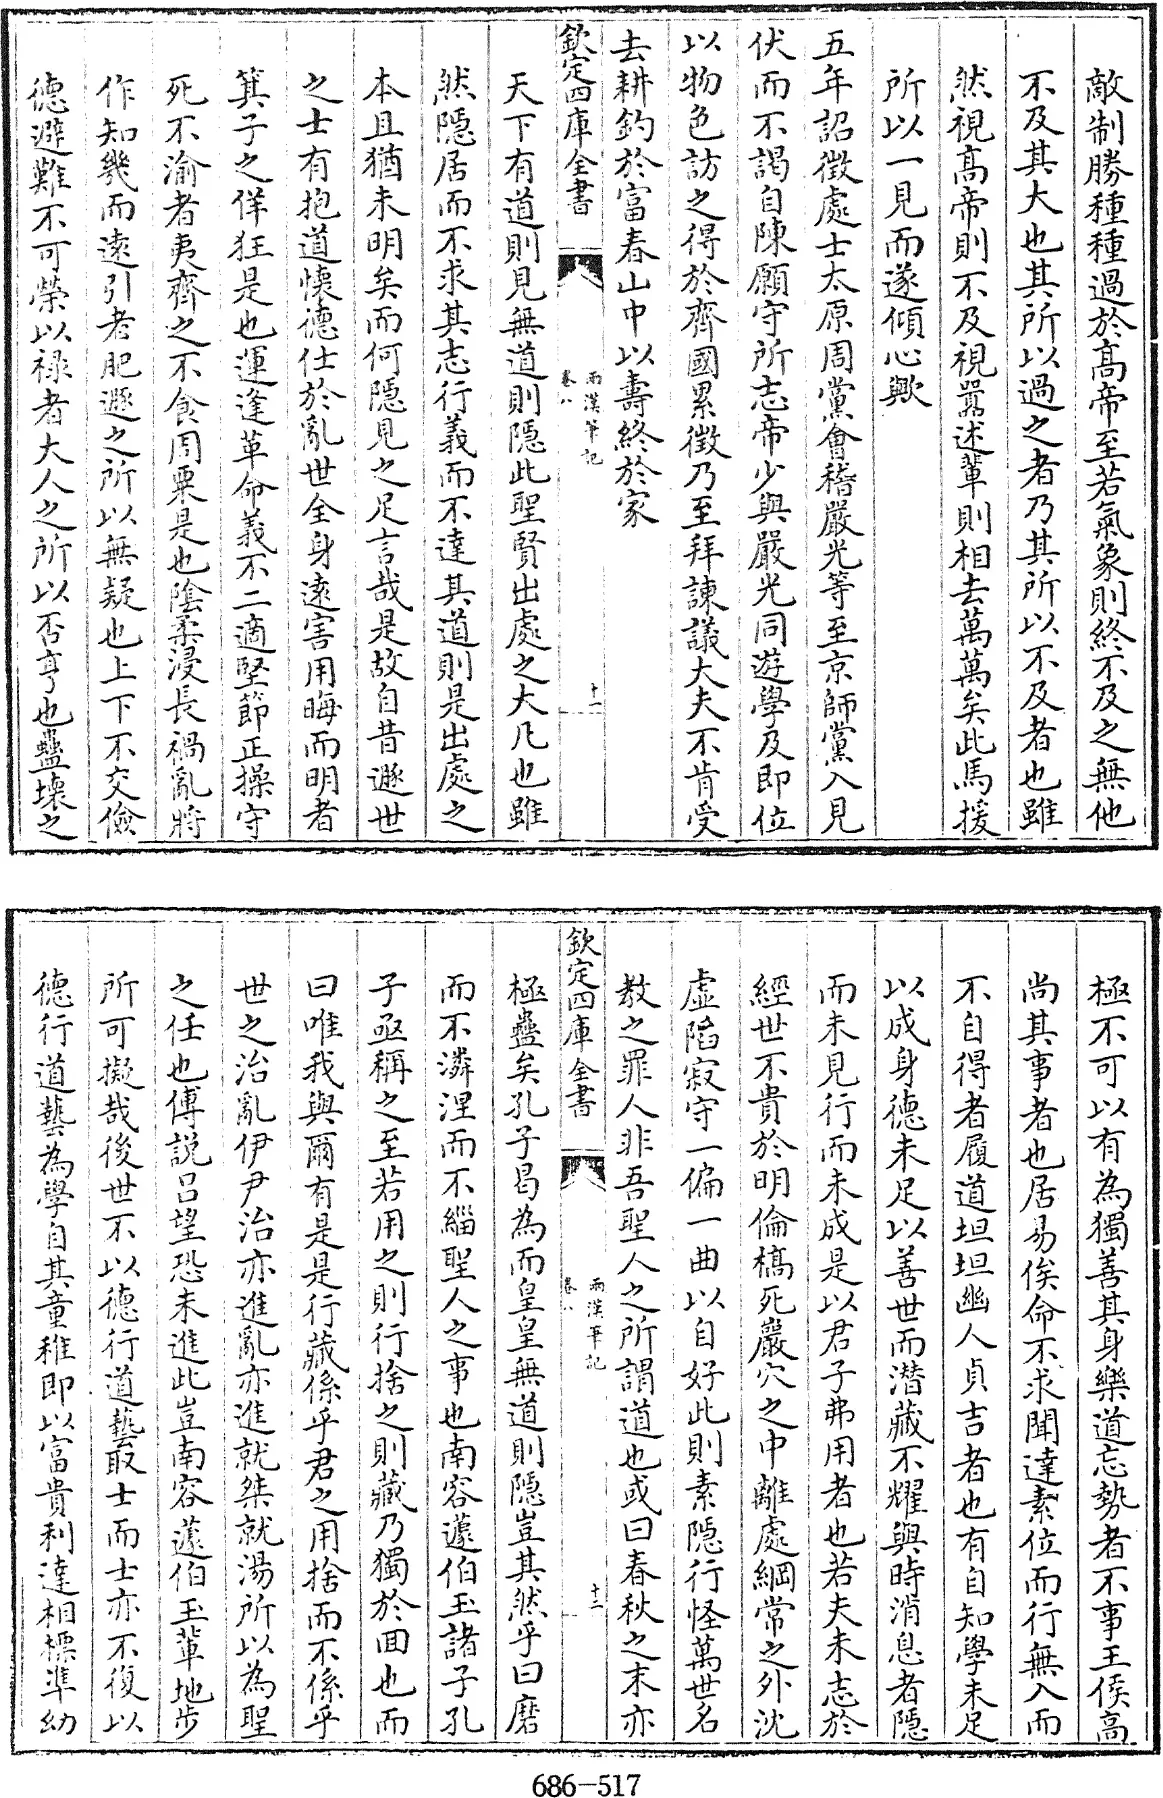 敵制勝種種過於高帝至若氣象則終不及之無他
不及其大也其所以過之者乃其所以不及者也雖
然視高帝則不及視囂述輩則相去萬萬矣此馬援
所以一見而遂傾心歟
五年詔徴處士太原周黨會稽嚴光等至京師黨入見
伏而不謁自陳願守所志帝少與嚴光同遊學及即位
以物色訪之得於齊國累徴乃至拜諫議大夫不肯受
去耕釣於富春山中以壽終於家
欽定四庫全書
兩漢筆記
卷八
十一
天下有道則見無道則隠此聖賢出處之大凡也雖
然隠居而不求其志行義而不達其道則是出處之
本且猶未明矣而何隠見之足言哉是故自昔遯世
之士有抱道懐德仕於亂世全身逺害用晦而明者
箕子之佯狂是也運逢革命義不二適堅節正操守
死不渝者夷齊之不食周粟是也陰柔浸長禍亂將
作知幾而逺引者肥遯之所以無疑也上下不交儉
德避難不可榮以祿者大人之所以否亨也蠱壊之
極不可以有為獨善其身樂道忘勢者不事王侯高
尚其事者也居易俟命不求聞達素位而行無入而
不自得者履道坦坦幽人貞吉者也有自知學未足
以成身德未足以善世而潛藏不耀與時消息者隠
而未見行而未成是以君子弗用者也若夫未志於
經世不貴於明倫槁死巖穴之中離處綱常之外沈
虛陷寂守一偏一曲以自好此則素隠行怪萬世名
教之罪人非吾聖人之所謂道也或曰春秋之末亦
欽定四庫全書
兩漢筆記
卷八
十二
極蠱矣孔子曷為而皇皇無道則隠豈其然乎曰磨
而不潾涅而不緇聖人之事也南容蘧伯玉諸子孔
子亟稱之至若用之則行捨之則藏乃獨於回也而
曰唯我與爾有是是行藏係乎君之用捨而不係乎
世之治亂伊尹治亦進亂亦進就桀就湯所以為聖
之任也傅説吕望恐未進此豈南容蘧伯玉輩地步
所可擬哉後世不以德行道藝取士而士亦不復以
德行道藝為學自其童稚即以富貴利達相標凖幼
686-517